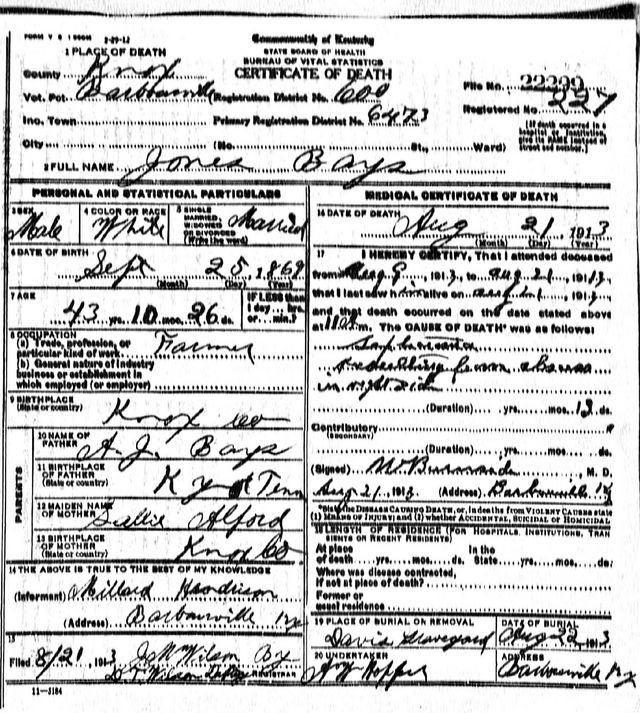 FORM V S 1 500M 2-29-12
Commonwealth of Kentucky
STATE BOARD OF HEALTH
BUREAU OF VITAL STATISTICS
CERTIFICATE OF DEATH
1 PLACE OF DEATH
County Knox
Vot. Pct. Barbourville Registration District No. 600
File No. 22299
Inc. Town Primary Registration District No. 6473
Registered No. 227
City (No. St., Ward)
(If death occurred in a hospital or institution, give its NAME instead of street and number.)
2 FULL NAME Jones Bays
PERSONAL AND STATISTICAL PARTICULARS
3 SEX Male
4 COLOR OR RACE White
5 SINGLE MARRIED, WIDOWED OR DIVORCED (Write the word) Married
6 DATE OF BIRTH
Sept 25, 1869
(Month) (Day) (Year)
7 AGE
43 yrs. 10 mos. 26 ds.
IF LESS than 1 day... hrs. or... min.?
8 OCCUPATION
(a) Trade, profession, or particular kind of work Farmer
(b) General nature of industry
business or establishment in
which employed (or employer)
9 BIRTHPLACE
(State or country) Knox Co
PARENTS
10 NAME OF FATHER A. J. Bays
11 BIRTHPLACE OF FATHER (State or country) Ky Tenn
12 MAIDEN NAME OF MOTHER Sallie Alford
13 BIRTHPLACE OF MOTHER (State or country) Knox Co
14 THE ABOVE IS TRUE TO THE BEST OF MY KNOWLEDGE
(Informant) Millard
(Address) Barbourville Ky
15
Filed 8/21, 1913 Wilson By
D. T. Wilson REGISTRAR
11-3184
MEDICAL CERTIFICATE OF DEATH
16 DATE OF DEATH
Aug 21, 1913
(Month) (Day) (Year)
17 I HEREBY CERTIFY, That I attended deceased
from Aug 9, 1913, to Aug 21, 1913,
that I last saw him alive on Aug 21, 1913,
and that death occurred on the date stated above
at m. The CAUSE OF DEATH* was as follows:
resulting from abscess
in right side
(Duration) yrs. mos. 13 ds.
Contributory
(SECONDARY)
(Duration) yrs. mos. ds.
(Signed) M. D.
Aug 21, 1913 (Address) Barbourville Ky
*State the DISEASE CAUSING DEATH, or, in deaths from VIOLENT CAUSES state
(1) MEANS OF INJURY; and (2) whether ACCIDENTAL, SUICIDAL or HOMICIDAL
18 LENGTH OF RESIDENCE (FOR HOSPITALS, INSTITUTIONS, TRANSIENTS OR RECENT RESIDENTS)
At place of death yrs. mos. ds. In the State yrs. mos. ds.
Where was disease contracted,
if not at place of death?
Former or
usual residence
19 PLACE OF BURIAL OR REMOVAL
Davis Graveyard
DATE OF BURIAL
Aug 22, 1913
20 UNDERTAKER
ADDRESS
Barbourville Ky